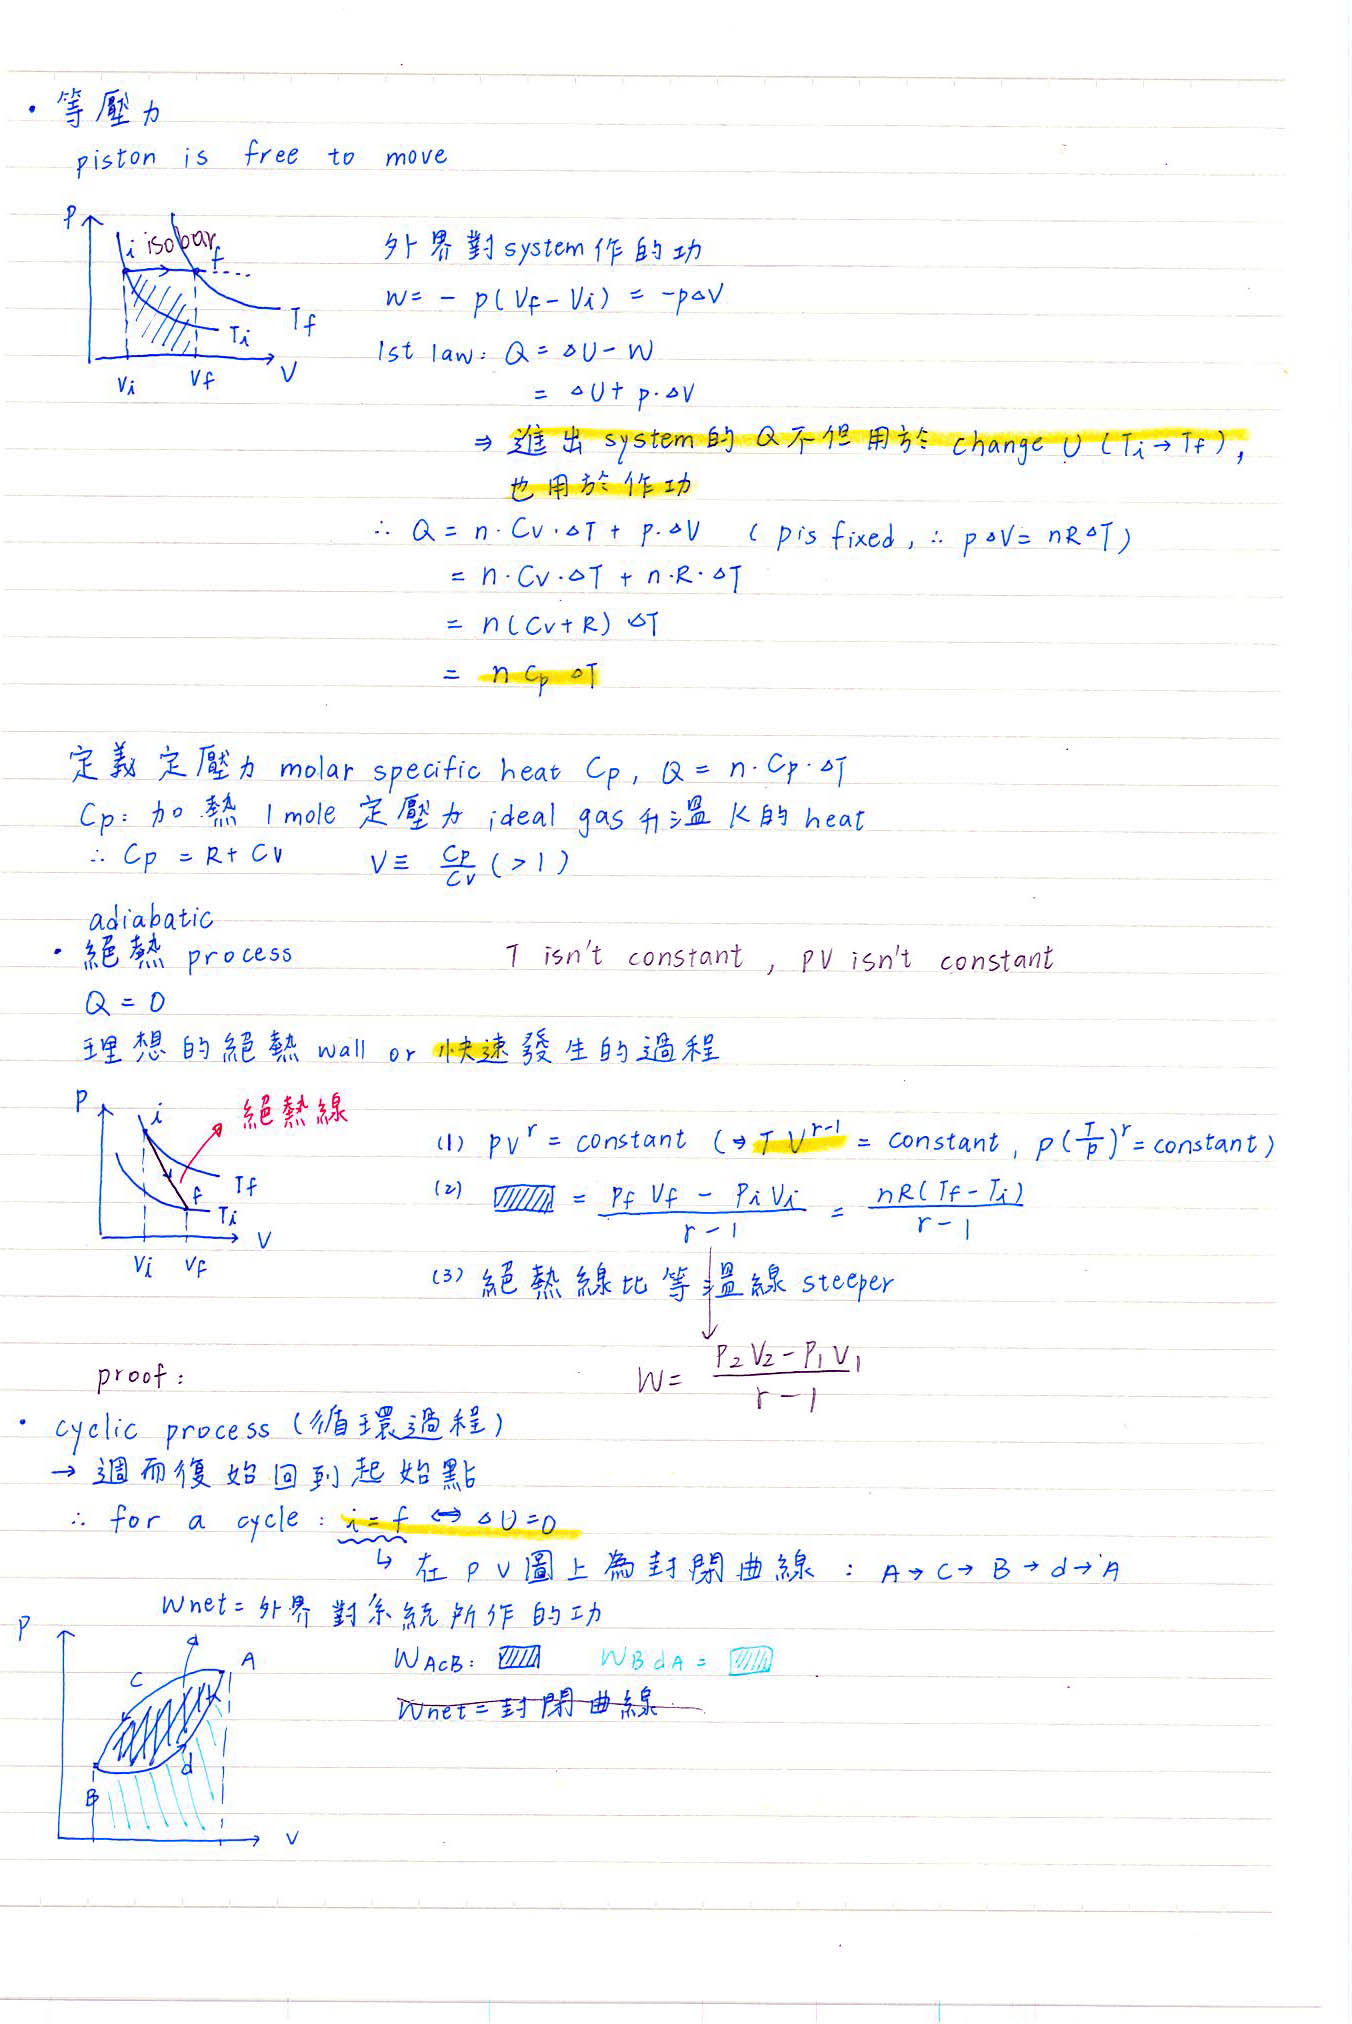 · 等壓力
piston is free to move
P
i isobar f
Tf
Ti
Vi Vf V
外界對system作的功
W = - p(Vf - Vi) = -p△V
1st law: Q = △U - W
= △U + p·△V
⇒ 進出 system的 Q 不但用於 change U (Ti→Tf),
也用於作功
∴ Q = n·Cv·△T + p·△V (p is fixed, ∴ p△V = nR△T)
= n·Cv·△T + n·R·△T
= n(Cv+R) △T
= n Cp △T
定義定壓力 molar specific heat Cp, Q = n·Cp·△T
Cp: 加熱 1 mole 定壓力 ideal gas 升溫 K的 heat
∴ Cp = R + Cv V ≡ Cp/Cv (>1)
adiabatic
· 絕熱 process T isn't constant , PV isn't constant
Q = 0
理想的絕熱 wall or 快速發生的過程
P
i
絕熱線
Tf
f
Ti
V
Vi Vf
(1) PV^r = constant (⇒ T V^r-1 = constant, P(T/P)^r = constant)
(2) = Pf Vf - Pi Vi / r-1 = nR(Tf - Ti) / r-1
(3) 絕熱線比等溫線 steeper
W = P2 V2 - P1 V1 / r-1
proof:
· cyclic process (循環過程)
→ 週而復始回到起始點
∴ for a cycle: i = f ⇔ △U = 0
↳ 在 PV圖上為封閉曲線 : A→C→B→d→A
Wnet = 外界對系統所作的功
P
d
C A
d
B
V
WACB: WBdA =
Wnet = 封閉曲線